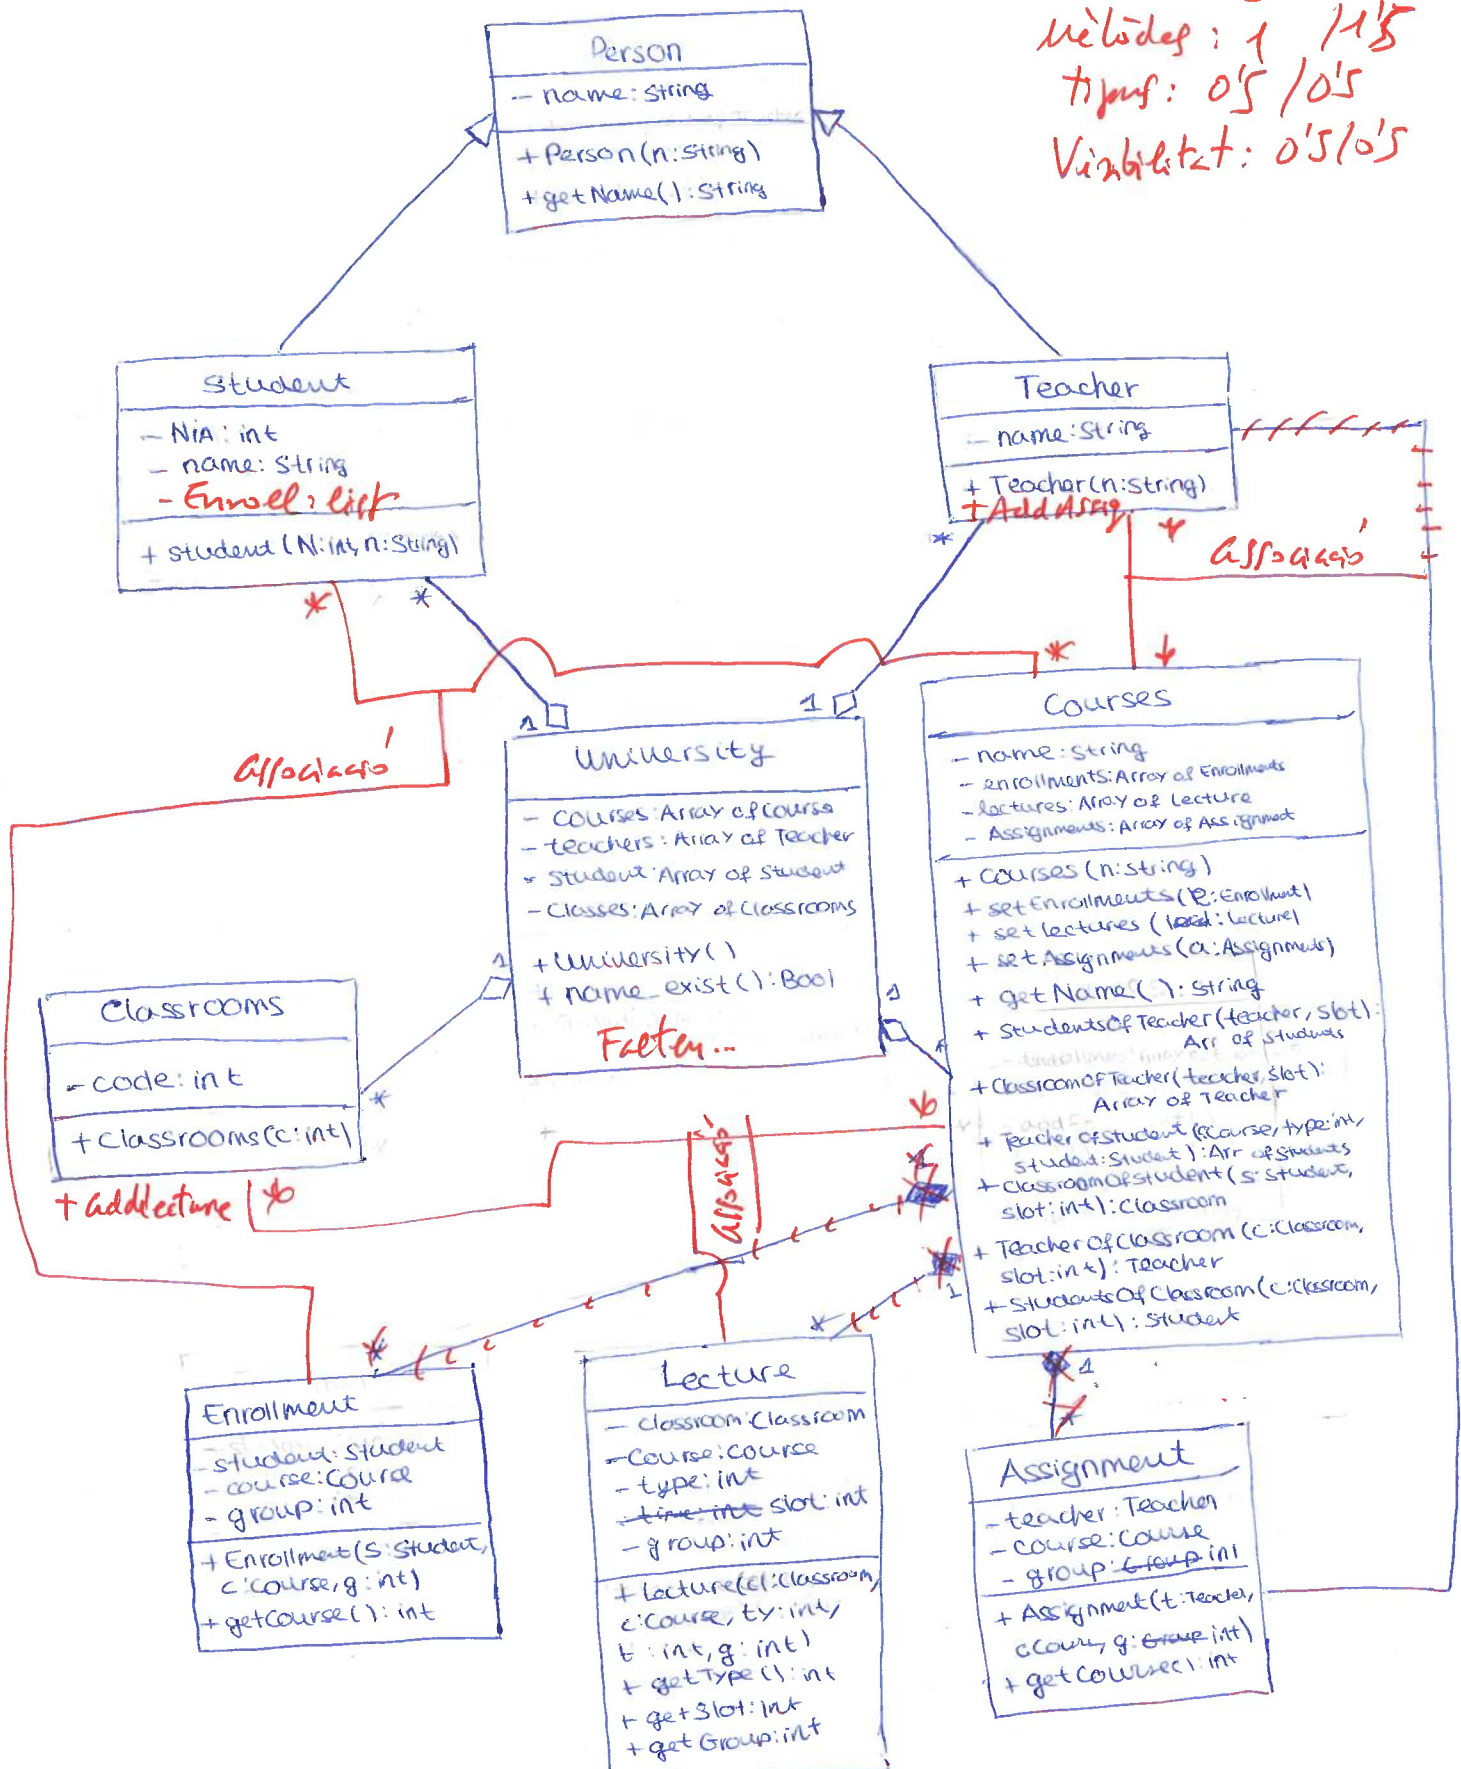 Mètodes: 1 /1'5
tipus: 0'5 /0'5
Visibilitat: 0'5/0'5
Person
- name: String
+ Person(n: String)
+ getName(): String
Student
- NiA: int
- name: String
- Enroll: list
+ student (N: int, n: String)
*
*
Teacher
- name: String
+ Teacher(n: String)
+ Add Assig.
*
*
Associació
*
*
Associació
1
1
University
- courses: Array of course
- teachers: Array of Teacher
- student: Array of student
- Classes: Array of Classrooms
+ University()
+ name_exist(): Bool
Falten...
1
1
*
Courses
- name: String
- enrollments: Array of Enrollments
- lectures: Array of Lecture
- Assignments: Array of Assignment
+ Courses (n: string)
+ setEnrollments (e: Enrollment)
+ set lectures (: lecture)
+ set Assignments (a: Assignments)
+ getName(): String
+ StudentsOfTeacher (teacher, slot):
Arr of students
+ ClassroomOfTeacher (teacher, slot):
Array of Teacher
+ TeacherOfStudent (course, type: int,
student: Student): Arr of students
+ ClassroomOfStudent (s: student,
slot: int): Classroom
+ TeacherOfClassroom (c: Classroom,
slot: int): Teacher
+ StudentsOfClassroom (c: Classroom,
slot: int): Student
Classrooms
- code: int
+ Classrooms (c: int)
+ addlecture
*
*
*
Associació
1
1
*
*
1
*
Enrollment
- student: Student
- course: Course
- group: int
+ Enrollment (s: Student,
c: course, g: int)
+ getCourse(): int
Lecture
- classroom: Classroom
- Course: course
- type: int
- time: int slot: int
- group: int
+ Lecture (cl: Classroom,
c: Course, ty: int,
t: int, g: int)
+ getType(): int
+ getSlot: int
+ getGroup: int
Assignment
- teacher: Teacher
- course: Course
- group: Group int
+ Assignment (t: Teacher,
c Course, g: Group int)
+ getCourse(): int